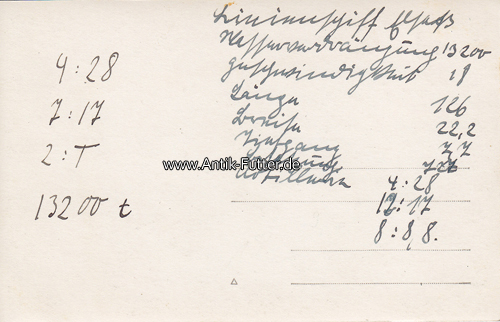 4:28
7:17
2:T
13200 t
Linienschiff Elsaß
Wasserverdrängung 13200
Geschwindigkeit 18
Länge 126
Breite 22,2
Tiefgang 7,7
Besatzung
Artillerie 4:28
12:17
8:8,8.
www.Antik-Futter.de